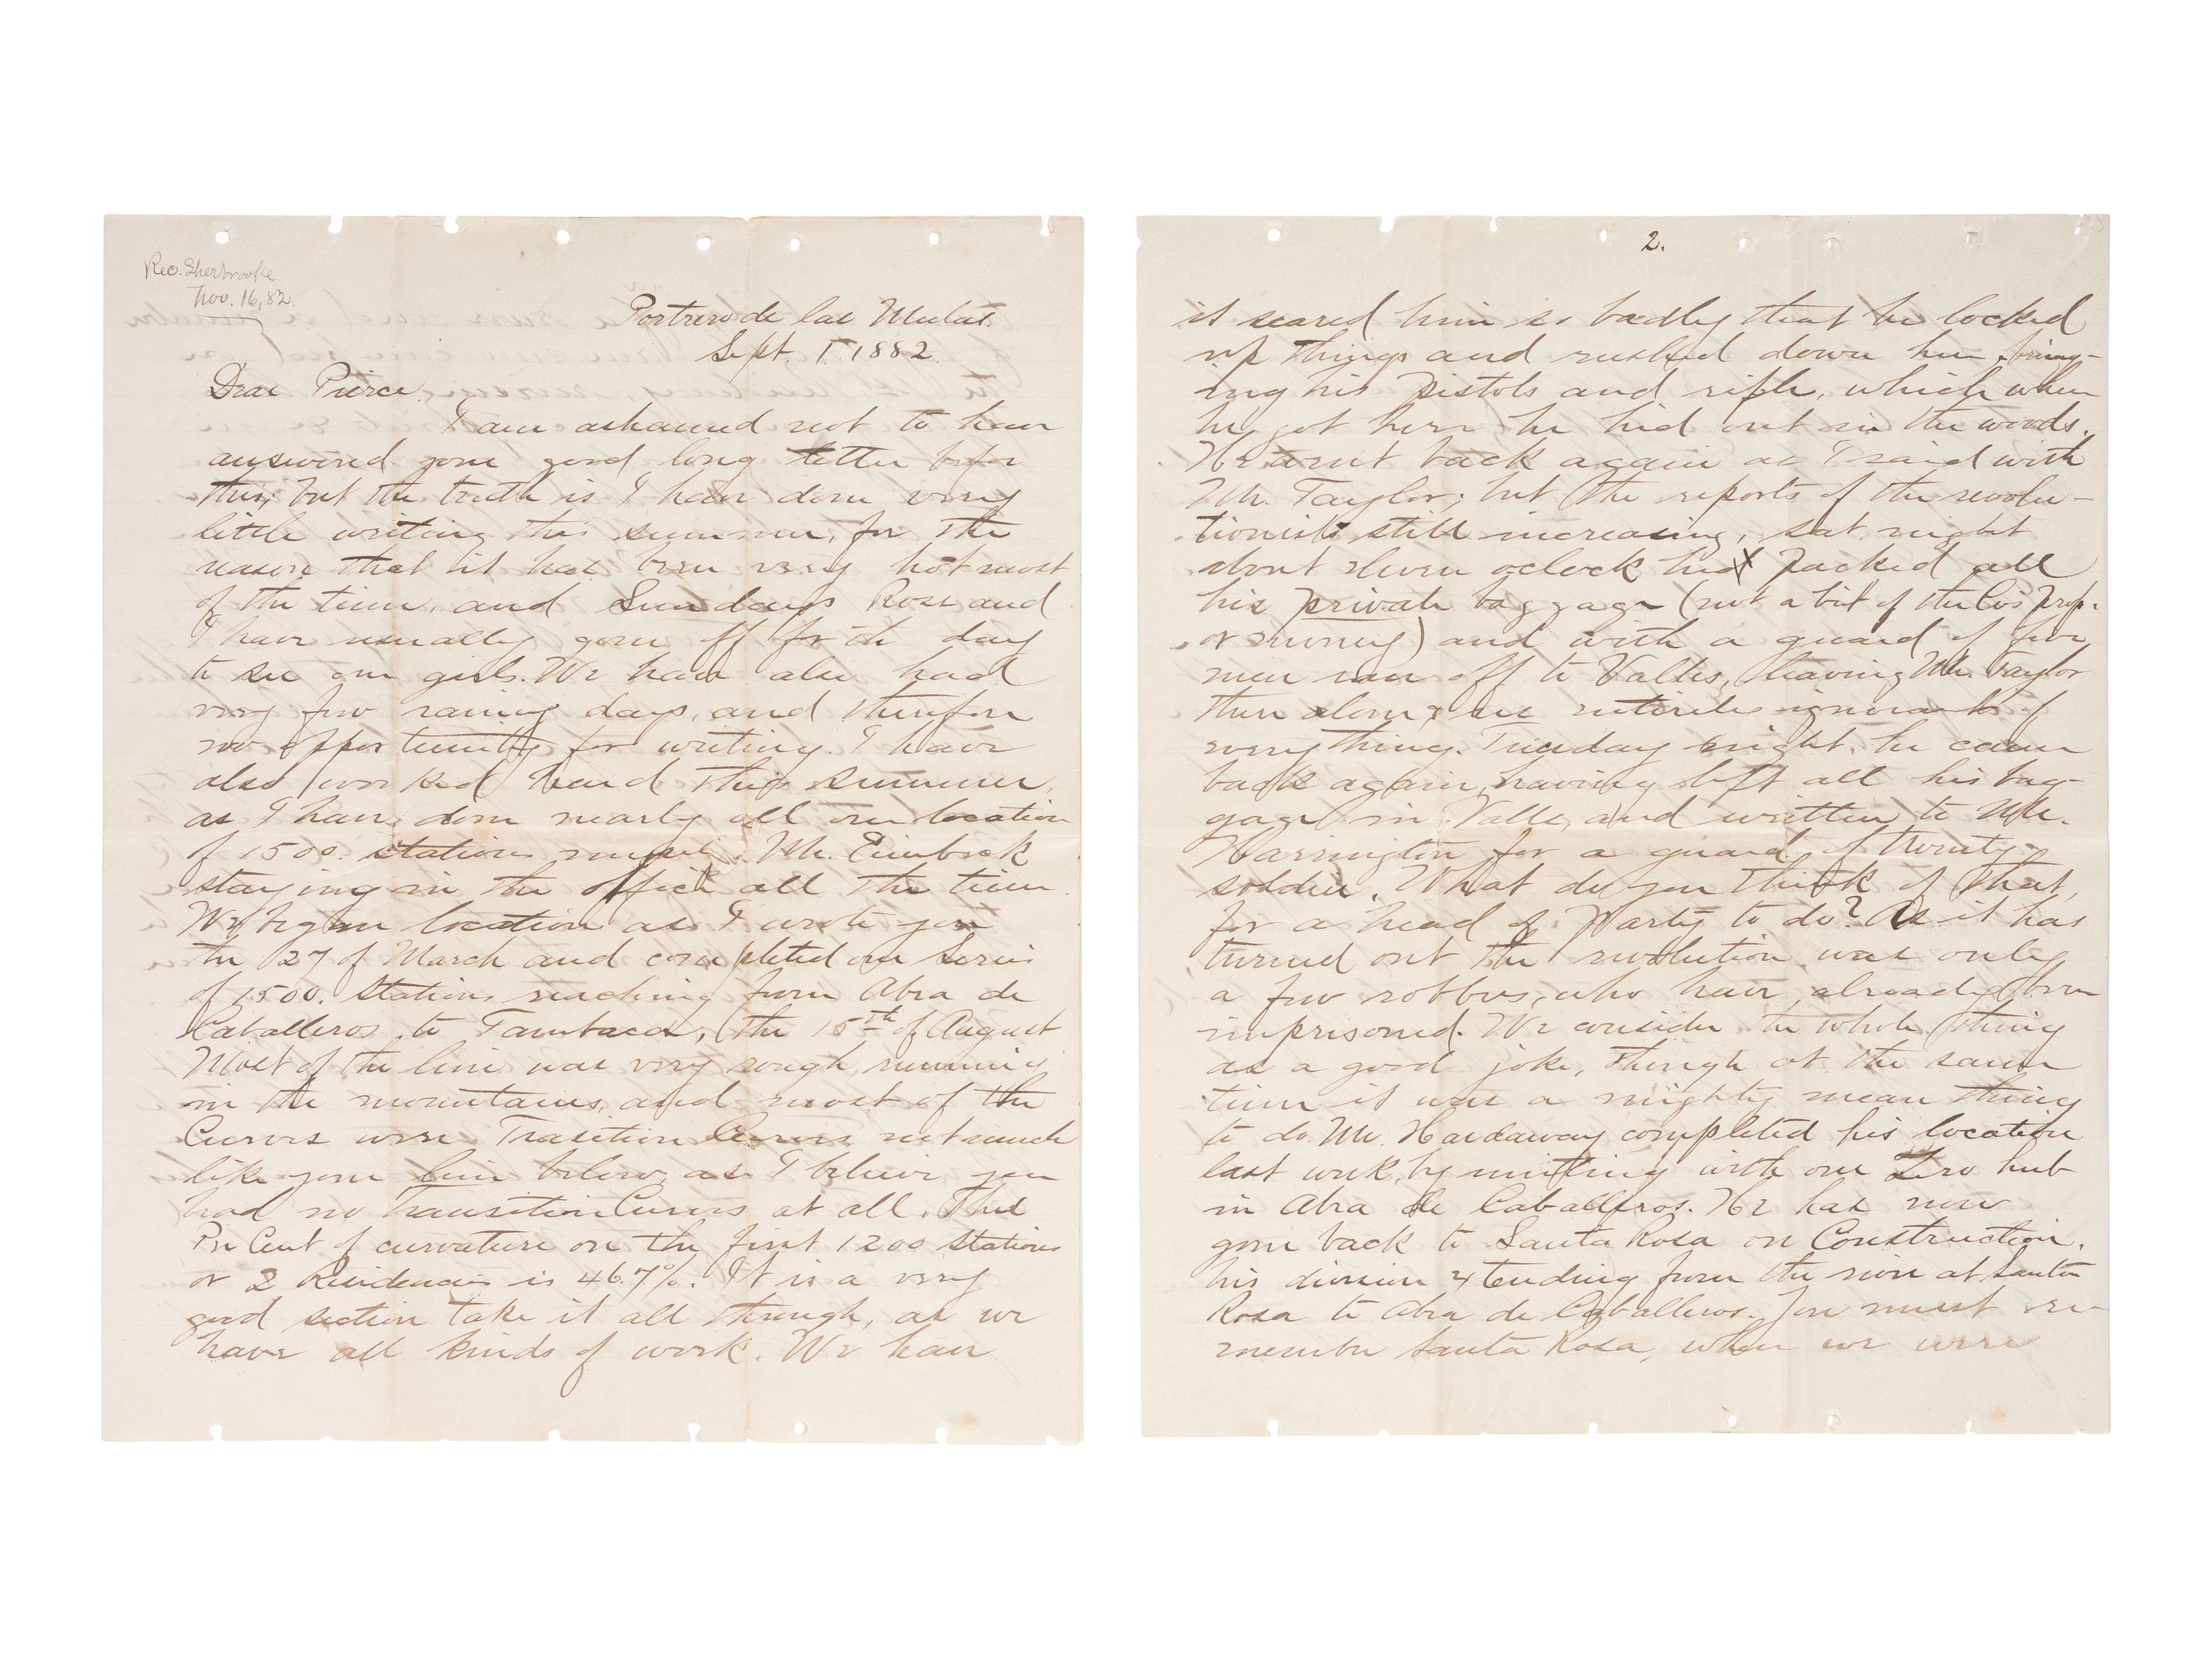 Rec. Sherbrooke
Nov. 16, 82.
Portrero de las Mulas.
Sept. 1, 1882.
Dear Pierce.
I am ashamed not to have
answered your good long letter before
this; but the truth is I have done very
little writing this summer, for the
reason that it has been very hot most
of the time, and Sundays Rose and
I have usually gone off for the day
to see our girls. We have also had
very few rainy days, and therefore
no opportunity for writing. I have
also worked hard this summer,
as I have done nearly all our location
of 1500. stations myself. Mr. Eimbeck
staying in the office all the time.
We began location as I wrote you
the 27 of March and completed our Series
of 1500. Stations reaching from Abra de
Caballeros to Tambaca, the 15th of August
Most of the line was very rough, running
in the mountains, and most of the
Curves were Trasition Curves not much
like your line below, as I believe you
had no transition Curves at all. The
Per Cent of curvature on the first 1200 Stations
or 2 Residencies is 46.7%. It is a very
good section take it all through, as we
have all kinds of work. We have
2.
it scared him so badly that he locked
up things and rushed down here, bring-
ing his pistols and rifle, which when
he got here he hid out in the woods.
He went back again as I said with
Mr. Taylor; but the reports of the revolu-
tionists still increasing, sat. night
about eleven oclock he packed all
his private baggage (not a bit of the Co's prop.
or money) and with a guard of five
men ran off to Valles, leaving Mr. Taylor
there alone, entirely ignorant of
everything. Tuesday night, he came
back again, having left all his bag-
gage in Valles, and written to Mr.
Harrington for a guard of twenty
soldiers. What do you think of that,
for a head of Party to do? As it has
turned out the revolution was only
a few robbers, who have already been
imprisoned. We consider the whole thing
as a good joke, though at the same
time it was a mighty mean thing
to do. Mr. Hardaway completed his location
last week, by meeting with our Zero hub
in Abra de Caballeros. He has now
gone back to Santa Rosa on Construction,
his division extending from the river at Santa
Rosa to Abra de Caballeros. You must re-
member Santa Rosa, when we were